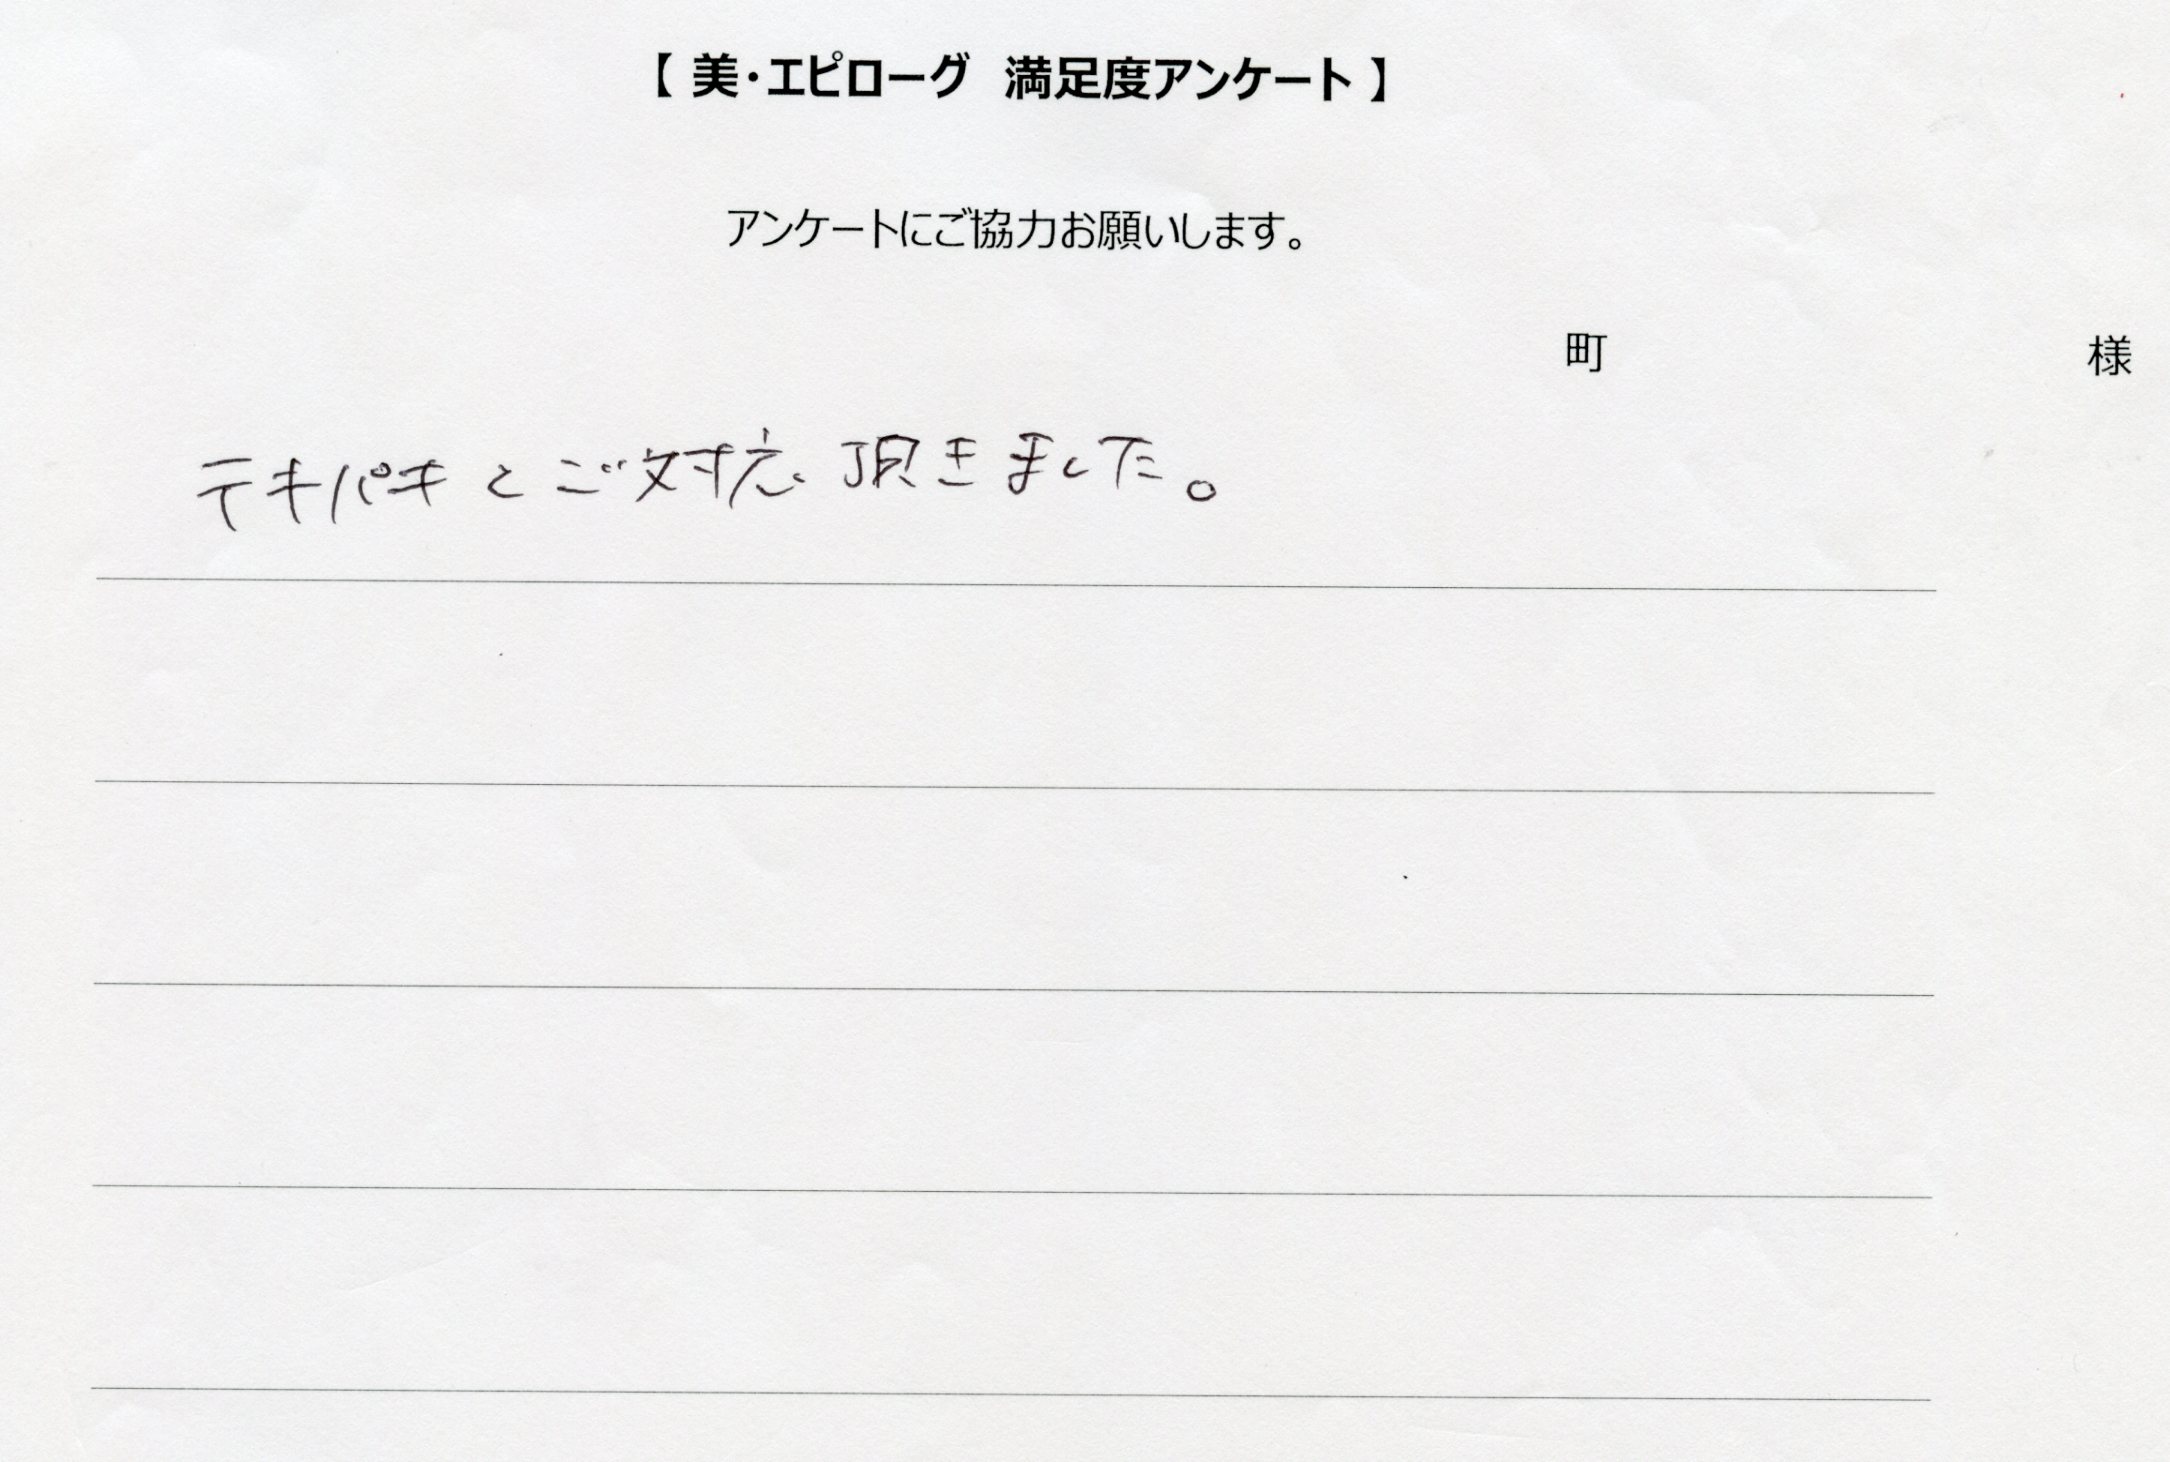 【 美・エピローグ 満足度アンケート 】
アンケートにご協力お願いします。
町 様
テキパキとご対応頂きました。